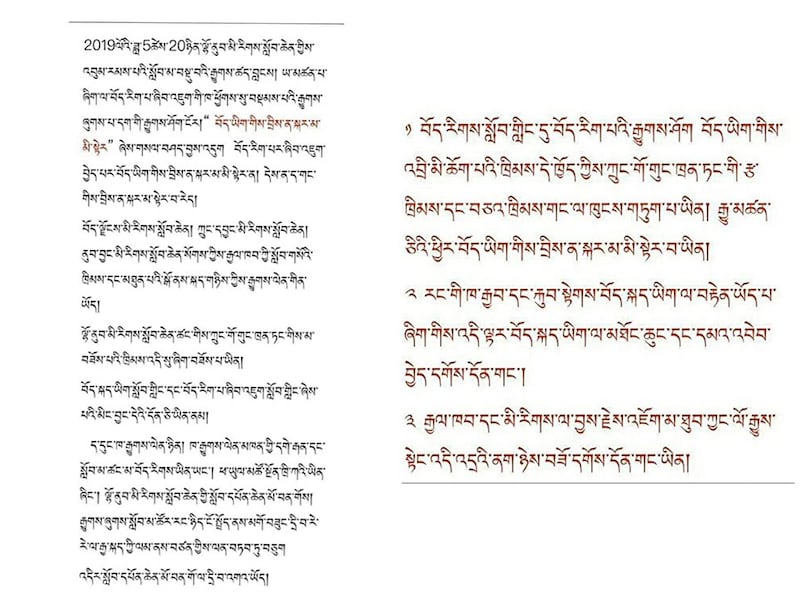 2019ལོའི་ཟླ་5ཚེས་20ཉིན་ལྷོ་ནུབ་མི་རིགས་སློབ་ཆེན་གྱིས་
འབུམ་རམས་པའི་སློབ་མ་བསྡུ་བའི་རྒྱུགས་ཚད་བླངས། ཡ་མཚན་པ་
ཞིག་ལ་བོད་རིག་པ་ཞིབ་འཇུག་གི་ཁ་ཕྱོགས་སུ་བསྡམས་པའི་རྒྱུགས་
ཞུགས་པ་དག་གི་རྒྱུགས་ཤོག་ངོར། “ བོད་ཡིག་གིས་བྲིས་ན་སྐར་མ་
མི་སྟེར” ཞེས་གསལ་བཤད་བྱས་འདུག བོད་རིག་པར་ཞིབ་འཇུག་
བྱེད་པར་བོད་ཡིག་གིས་བྲིས་ན་སྐར་མ་མི་སྟེར་ན། དེས་ན་ད་གང་
གིས་བྲིས་ན་སྐར་མ་སྟེར་བ་རེད།
བོད་ལྗོངས་མི་རིགས་སློབ་ཆེན། ཀྲུང་དབྱང་མི་རིགས་སློབ་ཆེན།
ནུབ་བྱང་མི་རིགས་སློབ་ཆེན་སོགས་ཀྱིས་རྒྱལ་ཁབ་ཀྱི་སློབ་གསོའི་
ཁྲིམས་དང་མཐུན་པའི་སྒོ་ནས་སྐད་གཉིས་ཀྱིས་རྒྱུགས་ལེན་གིན་
ཡོད།
ལྷོ་ནུབ་མི་རིགས་སློབ་ཆེན་ཚང་གིས་ཀྲུང་གོ་གུང་ཁྲན་ཏང་གིས་མ་
བཟོས་པའི་ཁྲིམས་འདི་སུ་ཞིག་བཟོས་པ་ཡིན།
བོད་སྐད་ཡིག་སློབ་གླིང་དང་བོད་རིག་པ་ཞིབ་འཇུག་སློབ་གླིང་ཞེས་
པའི་མིང་བྱང་དེའི་དོན་ཅི་ཡིན་ནམ།
ད་དུང་ཁ་རྒྱུགས་ལེན་ཉིན། ཁ་རྒྱུགས་ལེན་མཁན་གྱི་དགེ་རྒན་དང་
སློབ་མ་ཚང་མ་བོད་རིགས་ཡིན་ཡང་། ཕ་ཡུལ་མཚོ་སྔོན་ཁྲི་ཀའི་ཡིན་
ཞིང་། ལྷོ་ནུབ་མི་རིགས་སློབ་ཆེན་གྱི་སློབ་དཔོན་ཆེན་མོ་བན་གོས།
རྒྱུགས་ཞུགས་སློབ་མ་ཚོར་རང་ཉིད་ངོ་སྤྲོད་ནས་མགོ་བཟུང་དྲི་བ་རེ་
རེ་ལ་རྒྱ་སྐད་ཀྱི་ལམ་ནས་བཙན་གྱིས་ལན་བཏབ་ཏུ་བཅུག
འདིར་སློབ་དཔོན་ཆེན་མོ་བན་གོ་ལ་དྲི་བ་འགའ་ཡོད།
༡ བོད་རིགས་སློབ་གླིང་དུ་བོད་རིག་པའི་རྒྱུགས་ཤོག བོད་ཡིག་གིས་
འབྲི་མི་ཆོག་པའི་ཁྲིམས་དེ་ཁྱོད་ཀྱིས་ཀྲུང་གོ་གུང་ཁྲན་ཏང་གི་རྩ་
ཁྲིམས་དང་བཅའ་ཁྲིམས་གང་ལ་ཁུངས་གཏུག་པ་ཡིན། རྒྱུ་མཚན་
ཅིའི་ཕྱིར་བོད་ཡིག་གིས་བྲིས་ན་སྐར་མ་མི་སྟེར་བ་ཡིན།
༢ རང་གི་ཁ་རྒྱབ་དང་རྐུབ་སྟེགས་བོད་སྐད་ཡིག་ལ་བརྟེན་ཡོད་པ་
ཞིག་གིས་འདི་ལྟར་བོད་སྐད་ཡིག་ལ་མཐོང་ཆུང་དང་དམའ་འབེབ་
བྱེད་དགོས་དོན་གང་།
༣ རྒྱལ་ཁབ་དང་མི་རིགས་ལ་བྱས་རྗེས་འཇོག་མ་ཐུབ་ཀྱང་ལོ་རྒྱུས་
སྟེང་འདི་འདྲའི་ནག་ཉེས་བཟོ་དགོས་དོན་གང་ཡིན།